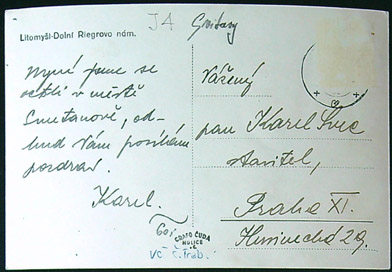 Litomyšl-Dolní Riegrovo nám.
J4 Gustavy
Nyní jsme se
octli v městě
Smetanově, od-
kud Vám posílám
pozdrav.
Karel.
Vážený
pan Karel
stavitel,
Praha XI.
FOTO ČUDA
HOLICE